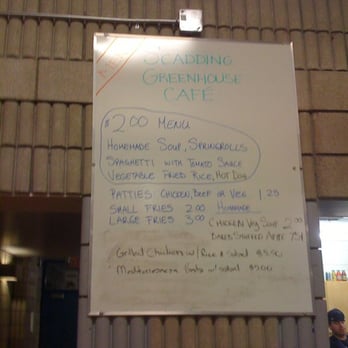 SCADDING
GREENHOUSE
CAFÉ
$2.00 MENU
HOMEMADE SOUP, SPRINGROLLS
SPAGHETTI WITH TOMATO SAUCE
VEGETABLE FRIED RICE, HOT DOG
PATTIES CHICKEN, BEEF OR VEG 1.25
SMALL FRIES 2.00 HOMEMADE
LARGE FRIES 3.00 CHICKEN VEG SOUP 2.00
Grilled Chicken w/ Rice & salad $5.50
Mediterranean Pasta w/ salad $5.00